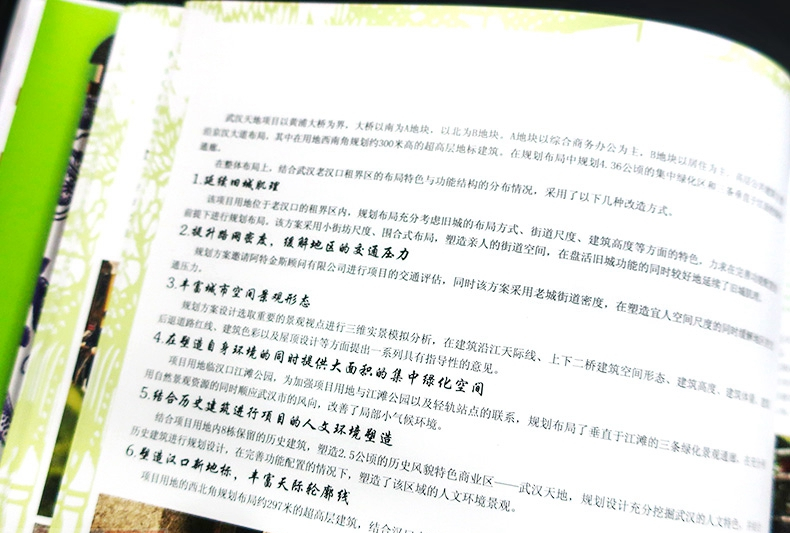 武汉天地项目以黄浦大桥为界，大桥以南为A地块，以北为B地块。A地块以综合商务办公为主，B地块以居住为主，
沿京汉大道布局，其中在用地西南角规划约300米高的超高层地标建筑。在规划布局中规划4.36公顷的集中绿化区和
通廊。
在整体布局上，结合武汉老汉口租界区的布局特色与功能结构的分布情况，采用了以下几种改造方式。
1.延续旧城肌理
该项目用地位于老汉口的租界区内，规划布局充分考虑旧城的布局方式、街道尺度、建筑高度等方面的特色，力求在完善
前提下进行规划布局。该方案采用小街坊尺度、围合式布局，塑造亲人的街道空间，在盘活旧城功能的同时较好地延续了旧城肌理。
2.提升路网密度，缓解地区的交通压力
规划方案邀请阿特金斯顾问有限公司进行项目的交通评估，同时该方案采用老城街道密度，在塑造宜人空间尺度的同时缓解
通压力。
3.丰富城市空间景观形态
规划方案设计选取重要的景观视点进行三维实景模拟分析，在建筑沿江天际线、上下二桥建筑空间形态、建筑高度、建筑体量、
后退道路红线、建筑色彩以及屋顶设计等方面提出一系列具有指导性的意见。
4.在塑造自身环境的同时提供大面积的集中绿化空间
项目用地临汉口江滩公园，为加强项目用地与江滩公园以及轻轨站点的联系，规划布局了垂直于江滩的三条绿化景观通廊，
用自然景观资源的同时顺应武汉市的风向，改善了局部小气候环境。
5.结合历史建筑进行项目的人文环境塑造
结合项目用地内8栋保留的历史建筑，塑造2.5公顷的历史风貌特色商业区——武汉天地，规划设计充分挖掘武汉的人文特色，
历史建筑进行规划设计，在完善功能配置的情况下，塑造了该区域的人文环境景观。
6.塑造汉口新地标，丰富天际轮廓线
项目用地的西北角规划布局约297米的超高层建筑，结合汉口